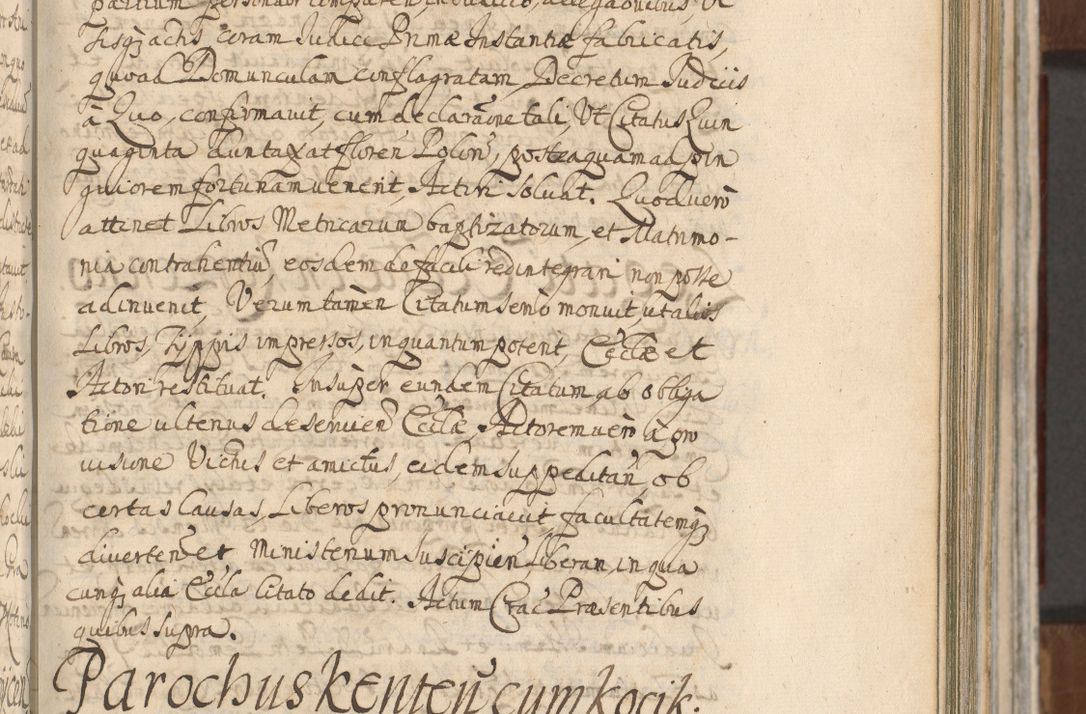 partium personaliter comparen, in Iudicio, allegaonibus, Ut
fisqz actis coram Iudice Primæ Instantiæ fabricatis,
quoad Domunculam conflagratam, Decretum Iudicis
à Quo, confirmavit, cum declaraone tali, Ut Citatus Quin
quaginta duntaxat floren Polon, posteaquam ad pin
guiorem fortunam venerit, Actori solvat. Quod vero
attinet Libros Metricarum baptizatorum, et Matrimo-
nia contrahentiu, eosdem de facili redintegrari non posse
adinvenit, Verum tamen Citatum serio monuit, ut alios
Libros, Typpis impressos, inquantum potent, Ecclæ et
Actori restituat. Insuper eundem Citatum ab obliga
tione ulterius deservien Ecclæ, Actorem vero à pro
visione Victus et amictus, eidem suppeditan, ob
certas Causas, Liberos pronunciavit, facultatemqz
diverten et Ministerium suscipien, liberan, in qua
cunqz alia Eccla Citato dedit. Actum Crac Præsentibus
quibus supra.
Parochus Kenten cum Kocik.